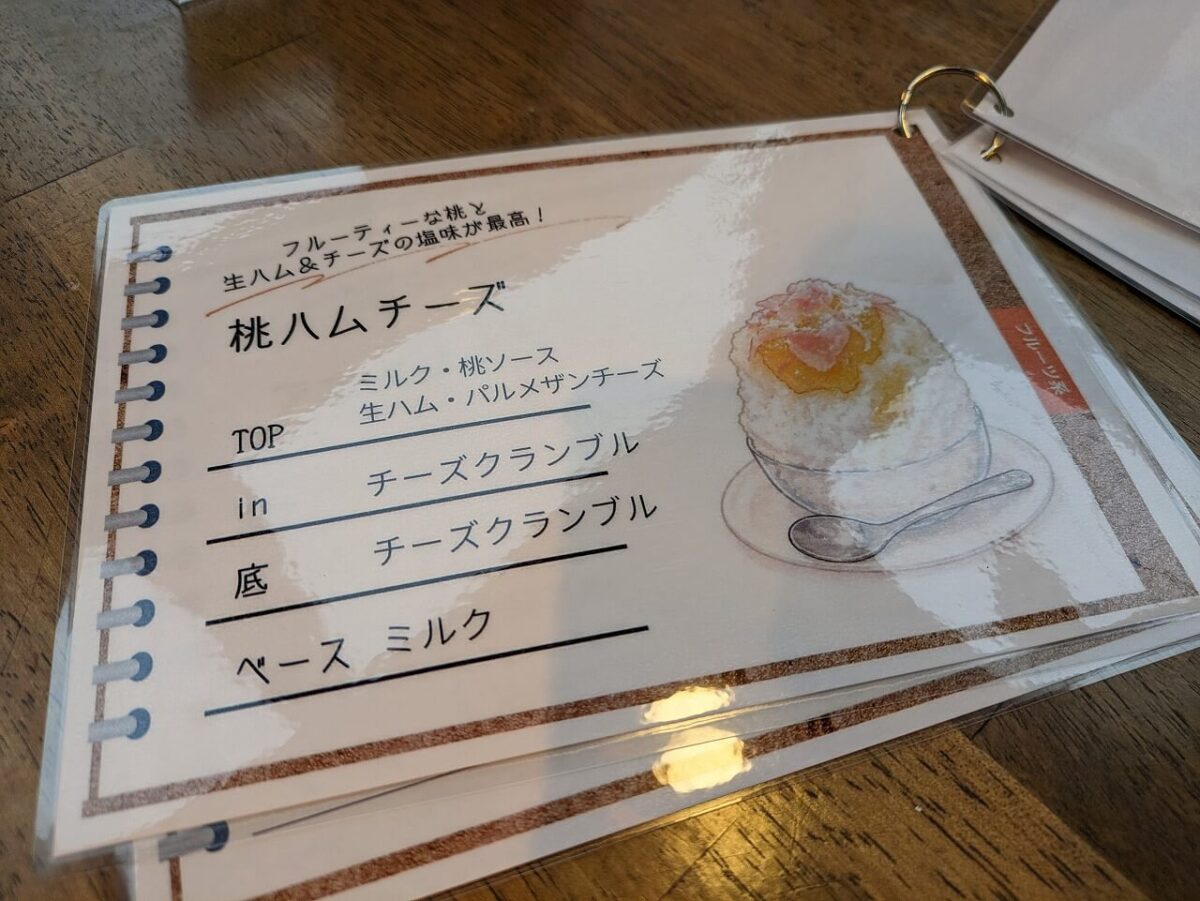 フルーティーな桃と
生ハム&チーズの塩味が最高!
桃ハムチーズ
ミルク・桃ソース
TOP 生ハム・パルメザンチーズ
in チーズクランブル
底 チーズクランブル
ベース ミルク
フルーツ系